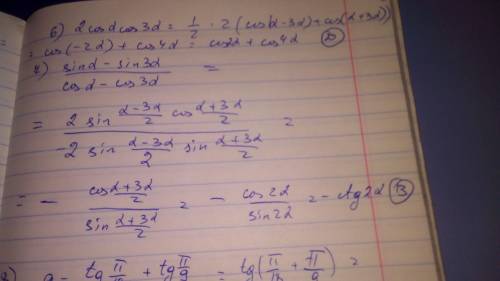 6) 2cosα cos3α = 1/2 · 2 (cos(α-3α)+cos(α+3α))
= cos(-2α) + cos4α = cos2α + cos4α
7) (sinα - sin3α)/(cosα - cos3α) =
= (2 sin (α-3α)/2 cos (α+3α)/2)/(-2 sin (α-3α)/2 sin (α+3α)/2) =
= - (cos (α+3α)/2)/(sin (α+3α)/2) = - cos2α/sin2α = - ctg2α